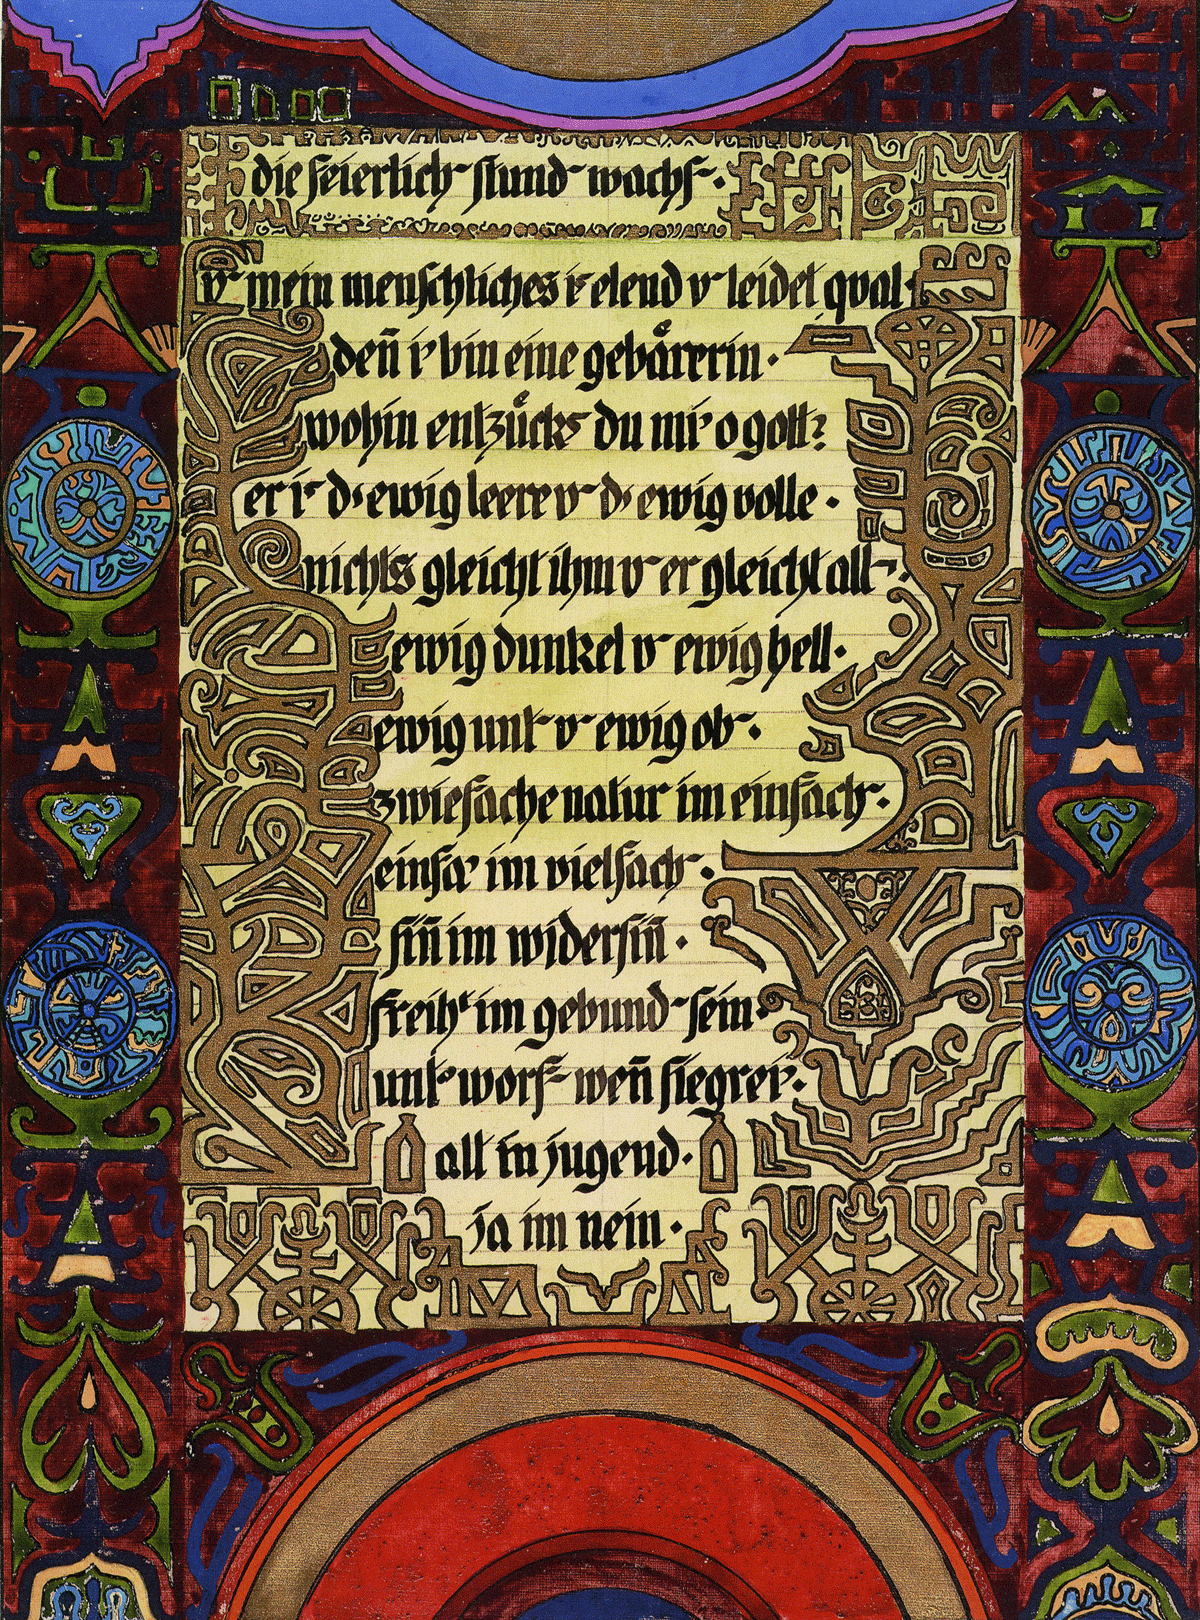 die feierlich stund wachs.
v mein menschliches i elend v leidet qval.
deñ i bin eine gebårerin.
wohin entzůcks du mi o gott?
er i d ewig leere v d ewig volle.
nichts gleicht ihm v er gleicht all.
ewig dunkel v ewig hell.
ewig unt v ewig ob.
zwiefache natur im einfach.
einfa im vielfach.
siñ im widersiñ.
freih im gebund sein.
unt worf weñ siegrei.
alt in jugend.
ja im nein.